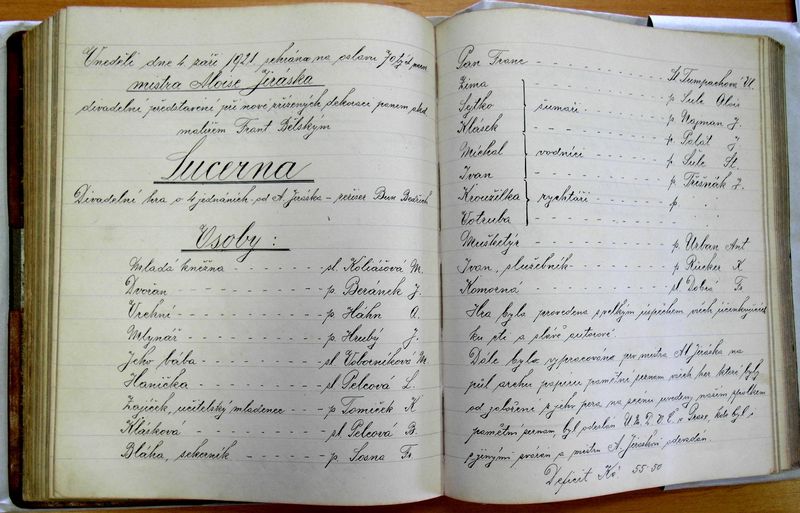 V neděli dne 4 září 1921 sehrána na oslavu 70tých
mistra Aloise Jiráska
divadelní představení při nově zřízených dekorací panem akad.
malířem Frant Bětským
Lucerna
Divadelní hra o 4 jednáních od A. Jiráska – režiser Bun Bedřich
Osoby :
Mladá kněžna - - - - - - sl. Koliášová M.
Dvořan - - - - - - p. Beránek J.
Vrchní - - - - - - p. Háhn A.
Mlynář - - - - - - p. Hrubý J.
Jeho bába - - - - - - sl. Voborníková M.
Hanička - - - - - - sl. Pelcová L.
Zajíček, učitelský mládenec - - - p. Tomíček K
Klásková - - - - - - sl. Pelcová B.
Bláha, sekerník - - - - - - p. Sosna Fr.
Pan Franc - - - - - - St. Tumpachova M.
Zima - - - - - - p. Šulc Alois
Sejtko - - - - - - p. Najman J.
Klásek } šumaři - - - - - - p. Palát J
Michal } vodníci - - - - - - p. Šulc St.
Ivan - - - - - - p. Třišňák J.
Kroužilka } rychtáři - - - - - - p.
Votruba
Mušketýr - - - - - - p. Urban Ant
Ivan, služebník - - - - - - p. Rücker K.
Komorná - - - - - - sl Dobrá Fr
Hra byla provedena s velkým úspěchem všech účinkujících
ku cti a slávě autorově.
Dále byla vypracována pro mistra Al Jiráska na
půl archu papíru pamětní seznam všech her které byly
od založení z jeho pera na scenu uvedeny naším spolkem
pamětní seznam byl odeslán Ú. M. D. O. Č. v Praze, kde byl i
s jinými svázán a mistru A. Jiráskovi odevzdán.
Deficit Kč. 55·50